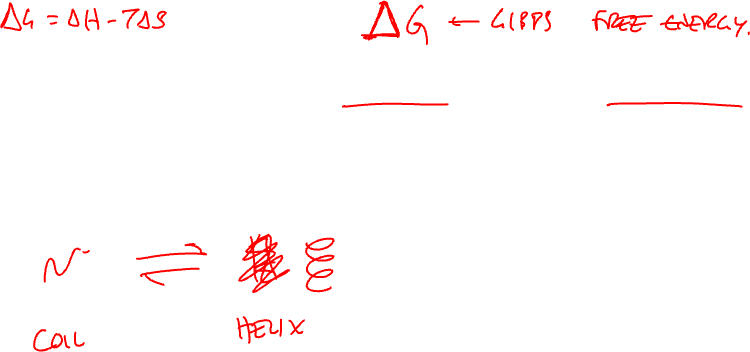 ΔG = ΔH - TΔS
ΔG ← GIBBS FREE ENERGY.
COIL ⇌ HELIX